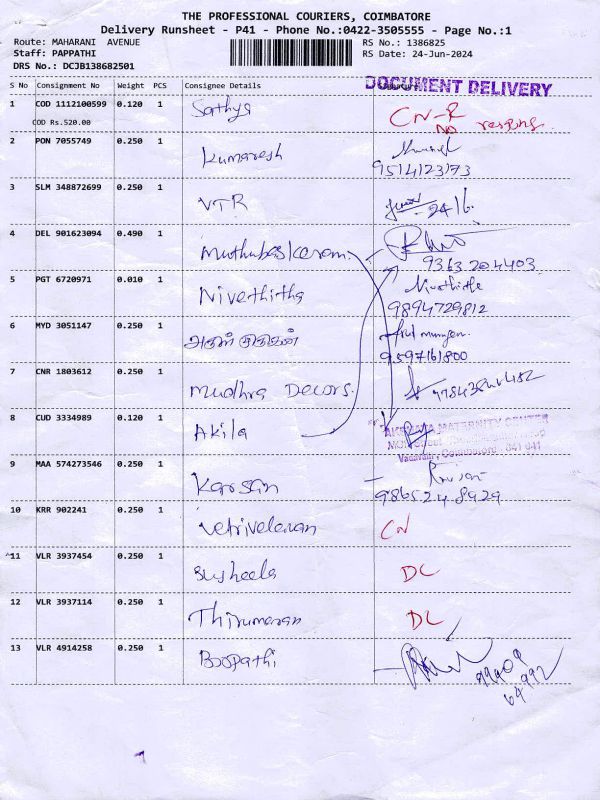 THE PROFESSIONAL COURIERS, COIMBATORE
Delivery Runsheet - P41 - Phone No.:0422-3505555 - Page No.:1
Route: MAHARANI AVENUE RS No.: 1386825
Staff: PAPPATHI RS Date: 24-Jun-2024
DRS No.: DCJB138682501
DOCUMENT DELIVERY
S No Consignment No Weight PCS Consignee Details
1 COD 1112100599 0.120 1 Sathya CN-R
COD Rs.520.00 NO respons.
2 PON 7055749 0.250 1 Kumaresh
9514123173
3 SLM 348872699 0.250 1 VTR 24/6
4 DEL 901623094 0.490 1 Muthubaskaram
9363204403
5 PGT 6720971 0.010 1 Nivethitha Nivethitha
9894729812
6 MYD 3051147 0.250 1 அருள் முருகன் Arul murugan
9597161800
7 CNR 1803612 0.250 1 Mudhra Decors.
8 CUD 3334989 0.120 1 Akila
MATERNITY CENTER
Vadavalli, Coimbatore - 641 041
9 MAA 574273546 0.250 1 Karsan
9865248929
10 KRR 902241 0.250 1 Vetrivelavan CN
11 VLR 3937454 0.250 1 Susheela DC
12 VLR 3937114 0.250 1 Thirumaran DC
13 VLR 4914258 0.250 1 Boopathi
99909
64992